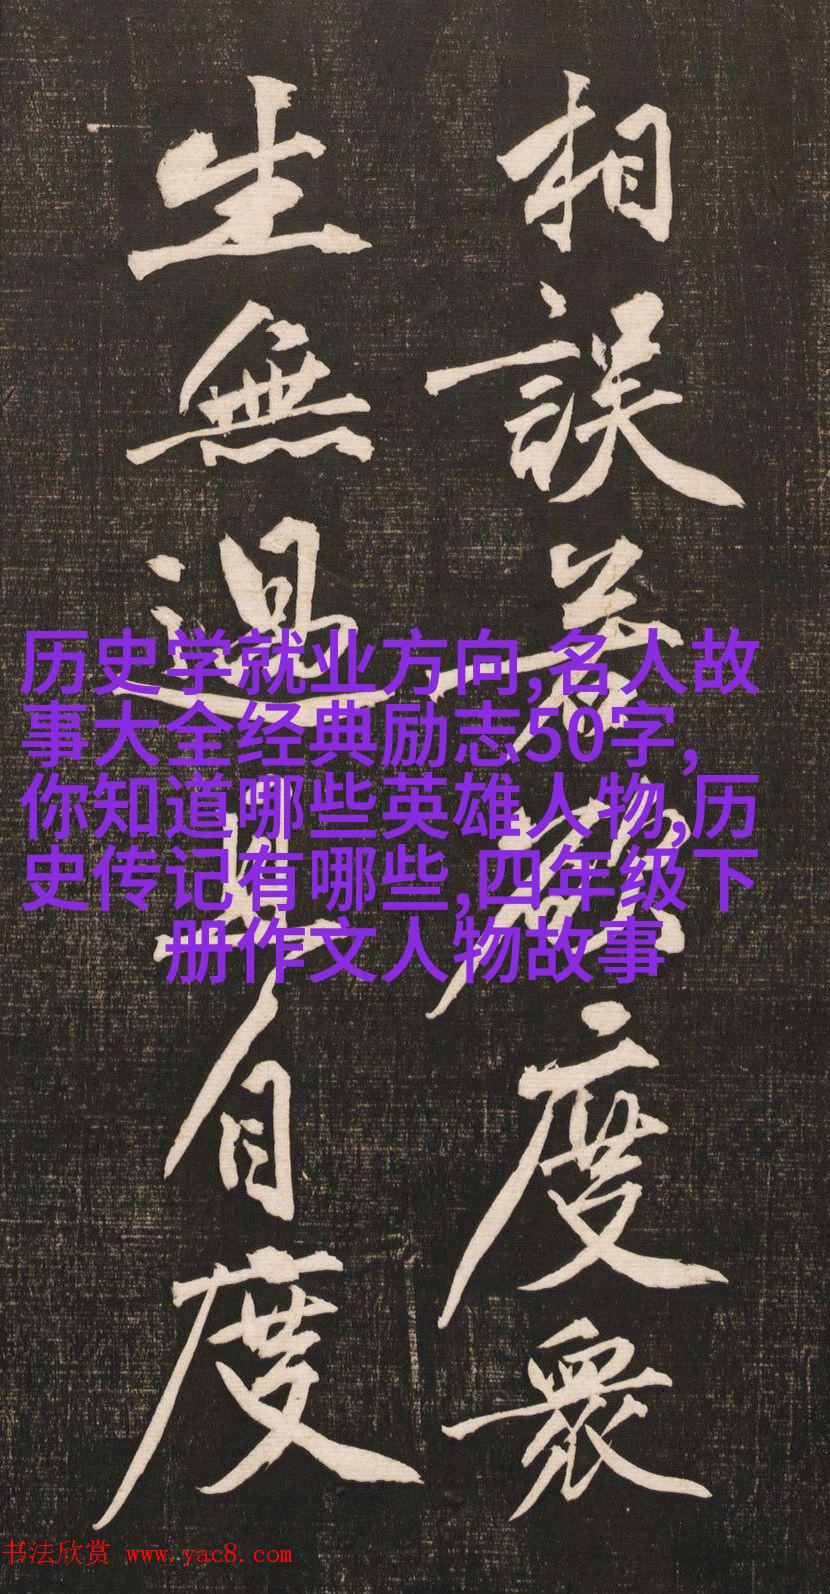 相誤若度眾
生無過自度
历史学就业方向,名人故
事大全经典励志50字,
你知道哪些英雄人物,历
史传记有哪些,四年级下
册作文人物故事
书法欣赏 www.yac8.com